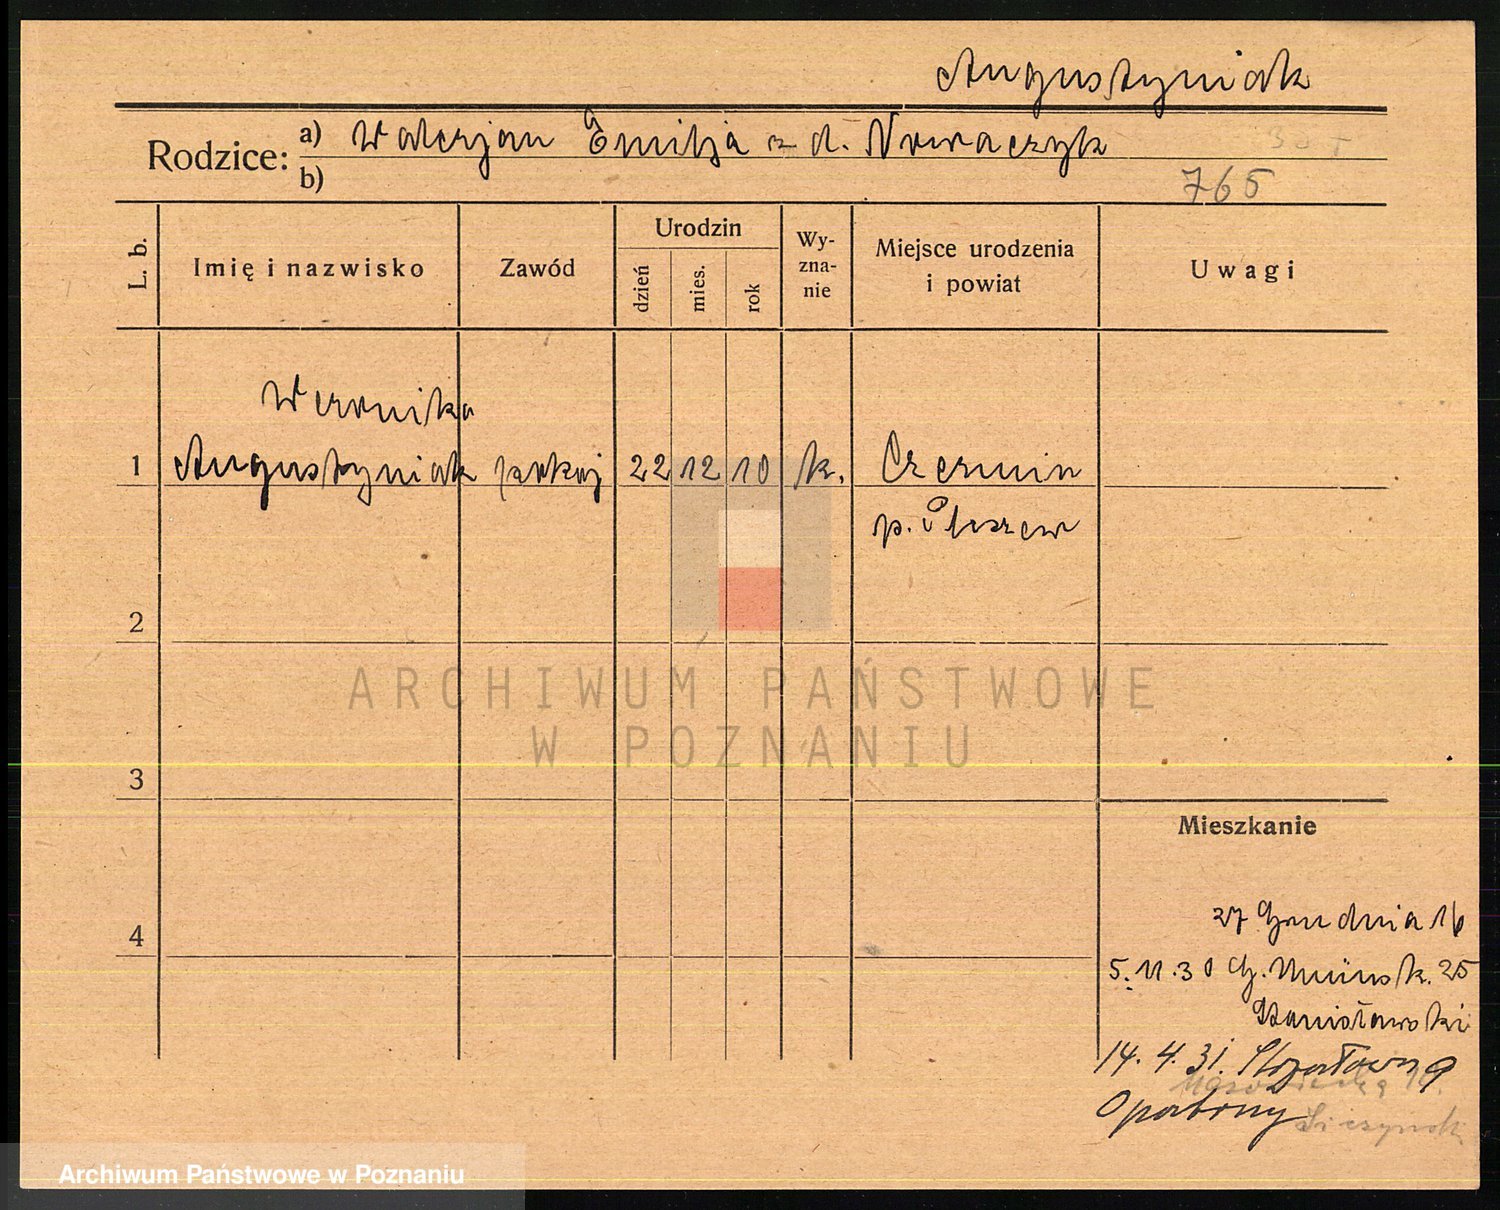 Augustyniak
Rodzice: a) Walerjan Emilja z d. Nowaczyk
b) 765
L. b. Imię i nazwisko Zawód Urodzin dzień mies. rok Wy-zna-nie Miejsce urodzenia i powiat Uwagi
Weronika
1 Augustyniak pokoj 22 12 10 k. Czermin
p. Pleszew
2
ARCHIWUM PAŃSTWOWE
W POZNANIU
3
Mieszkanie
4
27 Grudnia 16
5. 11. 30 25
Stanisławski
14. 4. 31. Strzałowa 9
Opatrny
Archiwum Państwowe w Poznaniu